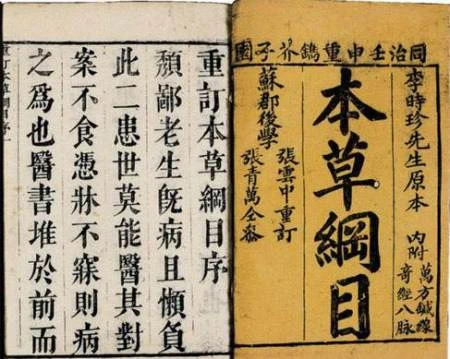 同治壬申重鐫芥子園
李時珍先生原本 內附 萬方鍼線
奇經八脉
本草綱目
蘇郡後學
張雲中重訂
張青萬仝參
重訂本草綱目序
頽鄙老生旣病且懶負
此二患世莫能醫其對
案不食憑牀不寐則病
之爲也醫書堆於前而
重訂本草綱目序